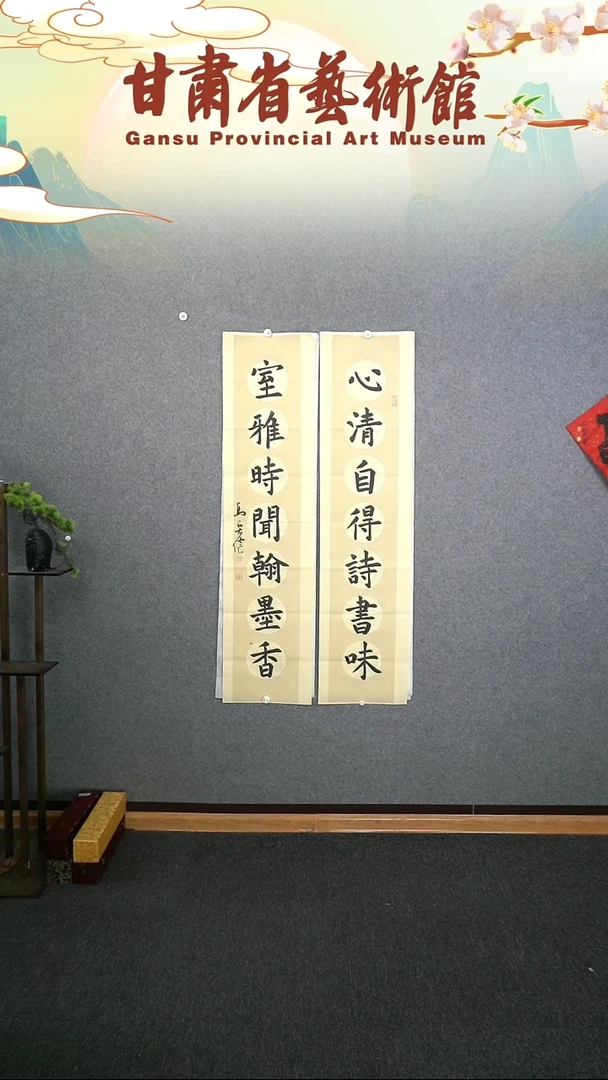 甘肅省藝術館
Gansu Provincial Art Museum
心清自得詩書味
室雅時聞翰墨香